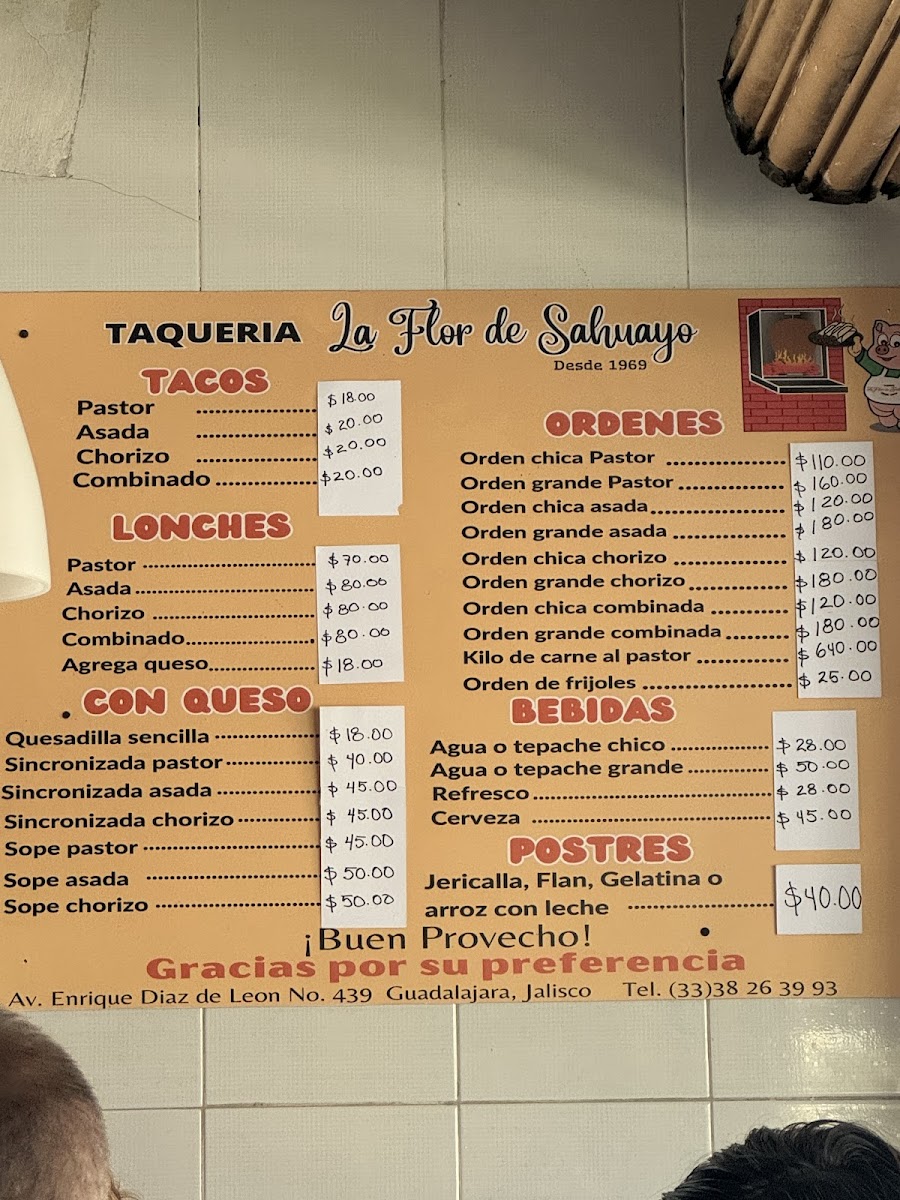 TAQUERIA La Flor de Sahuayo
Desde 1969
TACOS
Pastor ........ $18.00
Asada ........ $20.00
Chorizo ........ $20.00
Combinado ........ $20.00
LONCHES
Pastor ........ $70.00
Asada ........ $80.00
Chorizo ........ $80.00
Combinado ........ $80.00
Agrega queso ........ $18.00
CON QUESO
Quesadilla sencilla ........ $18.00
Sincronizada pastor ........ $40.00
Sincronizada asada ........ $45.00
Sincronizada chorizo ........ $45.00
Sope pastor ........ $45.00
Sope asada ........ $50.00
Sope chorizo ........ $50.00
ORDENES
Orden chica Pastor ........ $110.00
Orden grande Pastor ........ $160.00
Orden chica asada ........ $120.00
Orden grande asada ........ $180.00
Orden chica chorizo ........ $120.00
Orden grande chorizo ........ $180.00
Orden chica combinada ........ $120.00
Orden grande combinada ........ $180.00
Kilo de carne al pastor ........ $640.00
Orden de frijoles ........ $25.00
BEBIDAS
Agua o tepache chico ........ $28.00
Agua o tepache grande ........ $50.00
Refresco ........ $28.00
Cerveza ........ $45.00
POSTRES
Jericalla, Flan, Gelatina o
arroz con leche ........ $40.00
¡Buen Provecho!
Gracias por su preferencia
Av. Enrique Diaz de Leon No. 439 Guadalajara, Jalisco Tel. (33)38 26 39 93